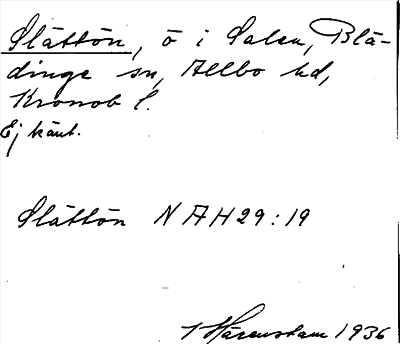 Slättön, ö i Salen, Blä-
dinge sn, Allbo hd,
Kronob l.
Ej känt.
Slättön NAH29:19
Härenstam 1936